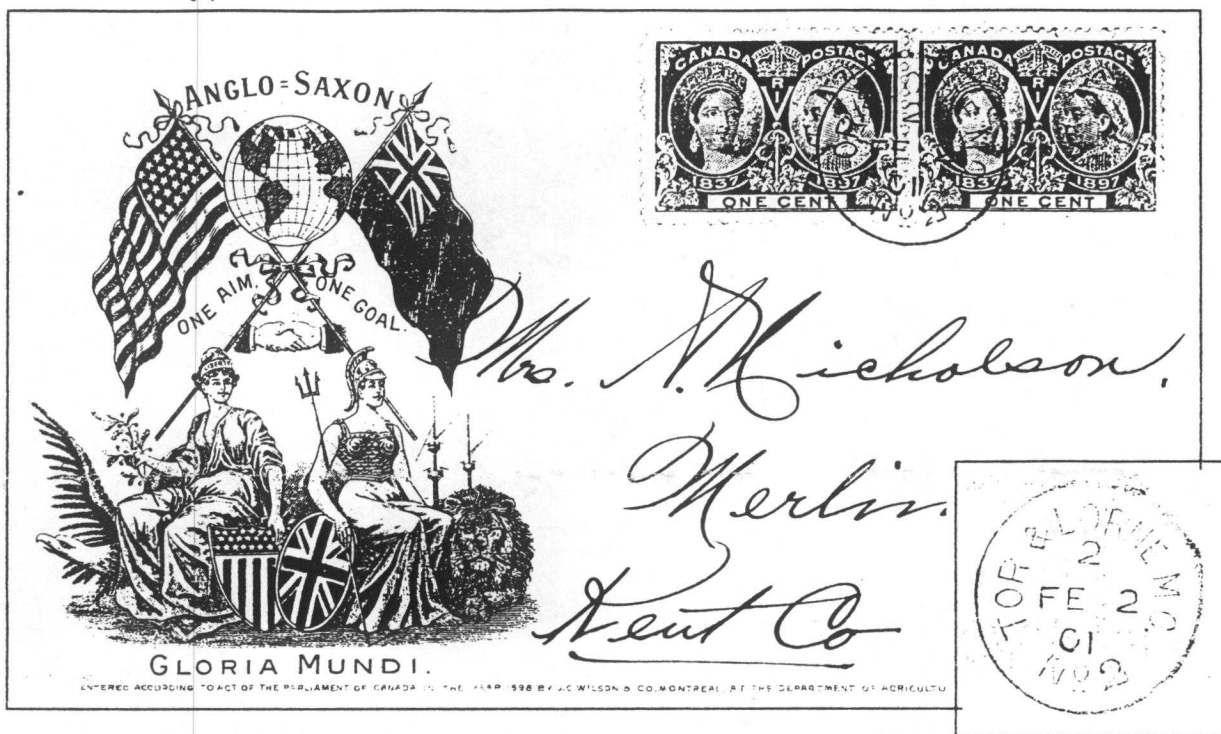 ANGLO=SAXON
ONE AIM, ONE GOAL.
GLORIA MUNDI.
ENTERED ACCORDING TO ACT OF THE PARLIAMENT OF CANADA IN THE YEAR 1898 BY J.C. WILSON & CO. MONTREAL, AT THE DEPARTMENT OF AGRICULTU
CANADA POSTAGE
V R I
1837 1897
ONE CENT
CANADA POSTAGE
V R I
1837 1897
ONE CENT
Mrs. N. Nicholson.
Merlin.
Kent Co
TOR & LORNE M.C.
2
FE 2
01
No 2